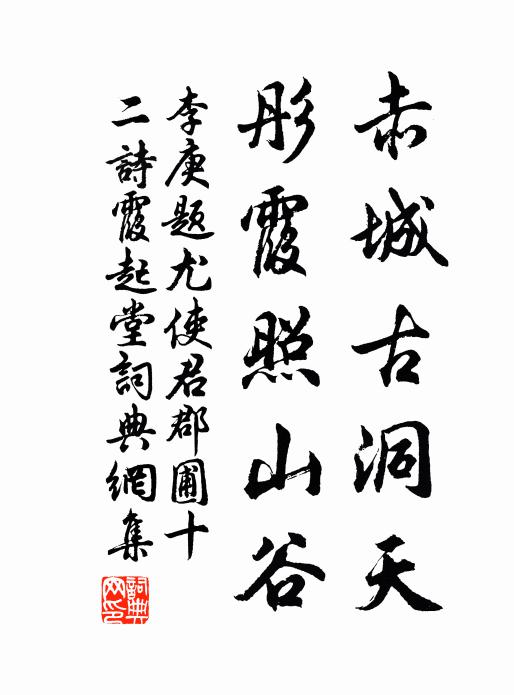 赤城古洞天
彤霞照山谷
李庚题尤使君郡圃十
二詩霞起堂詞典網集